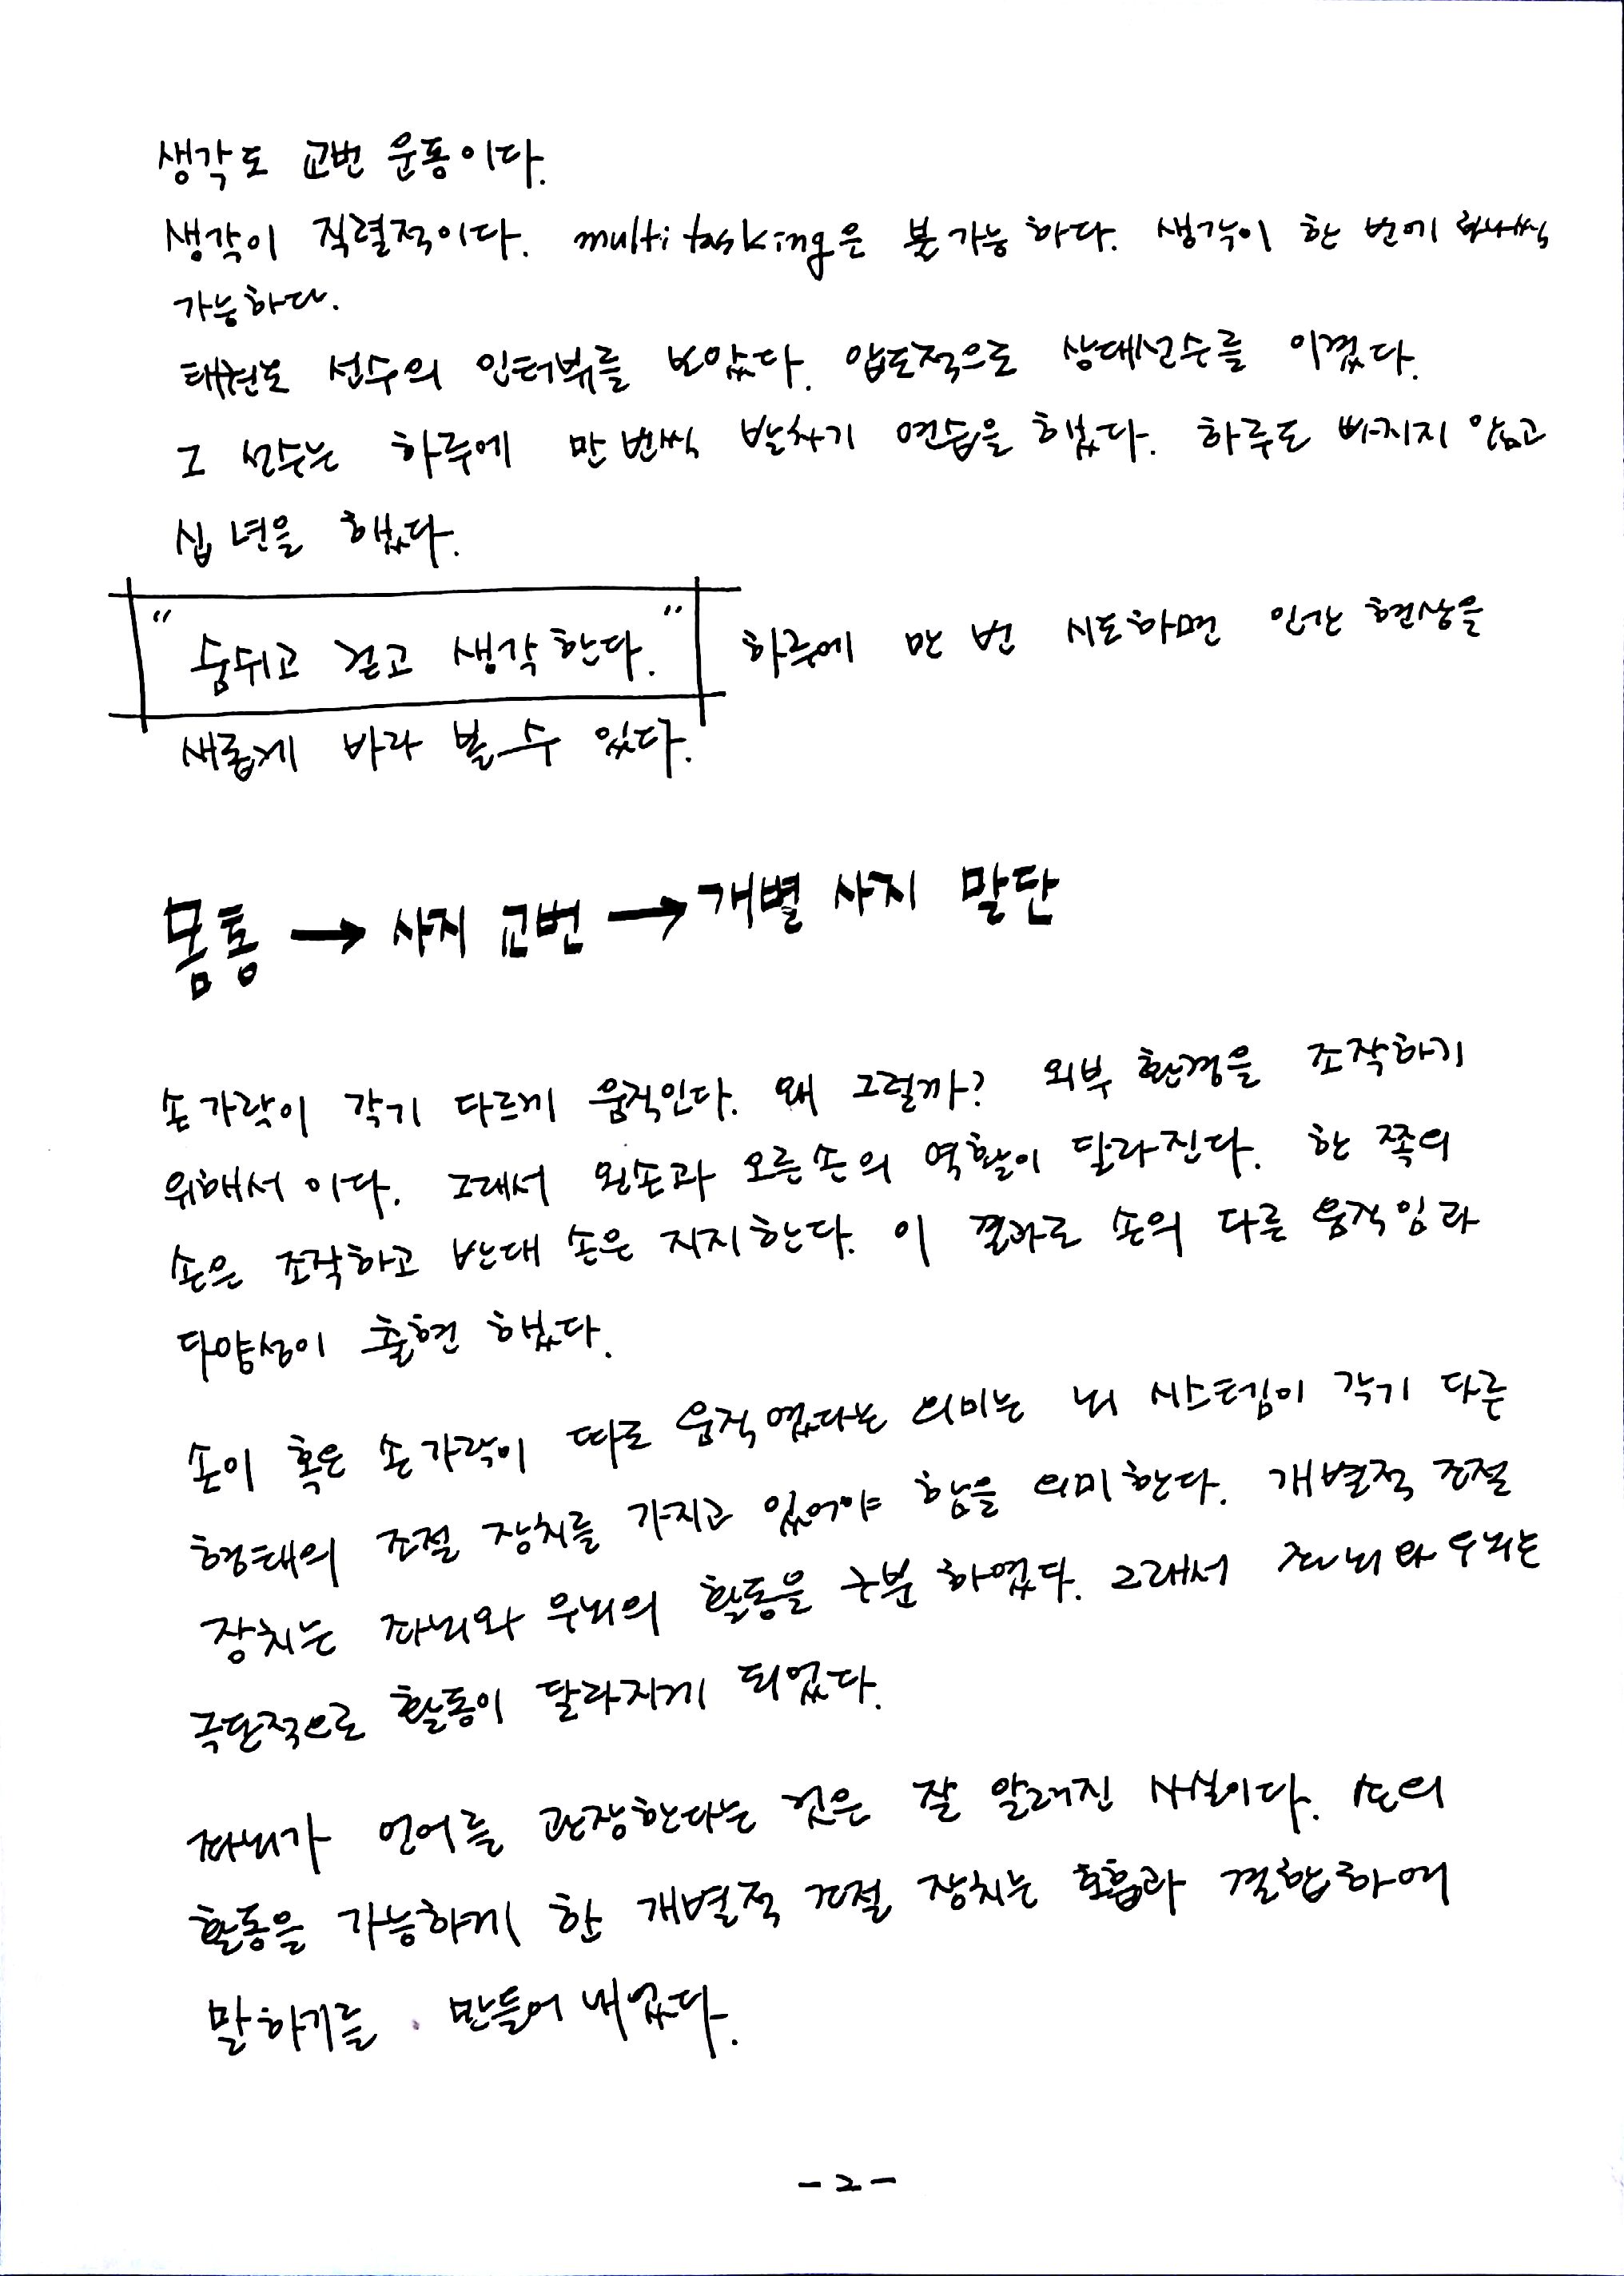 생각도 교번 운동이다.
생각이 직렬적이다. multitasking은 불가능하다. 생각이 한 번에 하나씩
가능하다.
태권도 선수의 인터뷰를 보았다. 압도적으로 상대선수를 이겼다.
그 선수는 하루에 만 번씩 발차기 연습을 했다. 하루도 빠지지 않고
십 년을 했다.
"숨쉬고 걷고 생각한다." 하루에 만 번 시도하면 인간 현상을
새롭게 바라 볼 수 있다.
몸통 → 사지 교번 → 개별 사지 말단
손가락이 각기 다르게 움직인다. 왜 그럴까? 외부 환경을 조작하기
위해서 이다. 그래서 왼손과 오른손의 역할이 달라진다. 한 쪽의
손은 조작하고 반대 손은 지지한다. 이 결과로 손의 다른 움직임과
다양성이 출현 했다.
손이 혹은 손가락이 따로 움직였다는 의미는 뇌 시스템이 각기 다른
형태의 조절 장치를 가지고 있어야 함을 의미한다. 개별적 조절
장치는 좌뇌와 우뇌의 활동을 구분 하였다. 그래서 좌뇌와 우뇌는
극단적으로 활동이 달라지게 되었다.
좌뇌가 언어를 관장한다는 것은 잘 알려진 사실이다. 손의
활동을 가능하게 한 개별적 조절 장치는 호흡과 결합하여
말하기를 만들어 내었다.
- 2 -